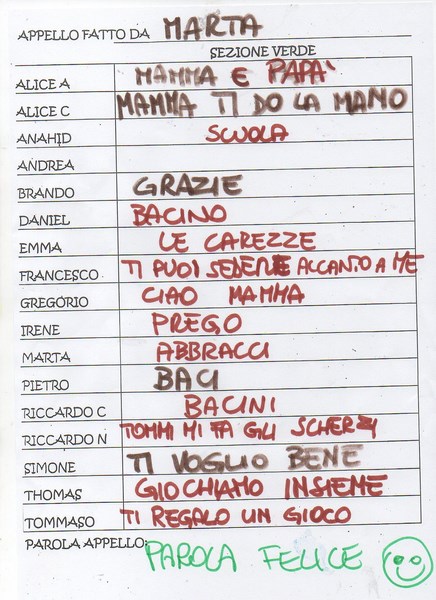 APPELLO FATTO DA MARTA
SEZIONE VERDE
ALICE A MAMMA E PAPA'
ALICE C MAMMA TI DO LA MANO
ANAHID SCUOLA
ANDREA
BRANDO GRAZIE
DANIEL BACINO
EMMA LE CAREZZE
FRANCESCO TI PUOI SEDERE ACCANTO A ME
GREGORIO CIAO MAMMA
IRENE PREGO
MARTA ABBRACCI
PIETRO BACI
RICCARDO C BACINI
RICCARDO N TOMMI MI FA GLI SCHERZI
SIMONE TI VOGLIO BENE
THOMAS GIOCHIAMO INSIEME
TOMMASO TI REGALO UN GIOCO
PAROLA APPELLO: PAROLA FELICE